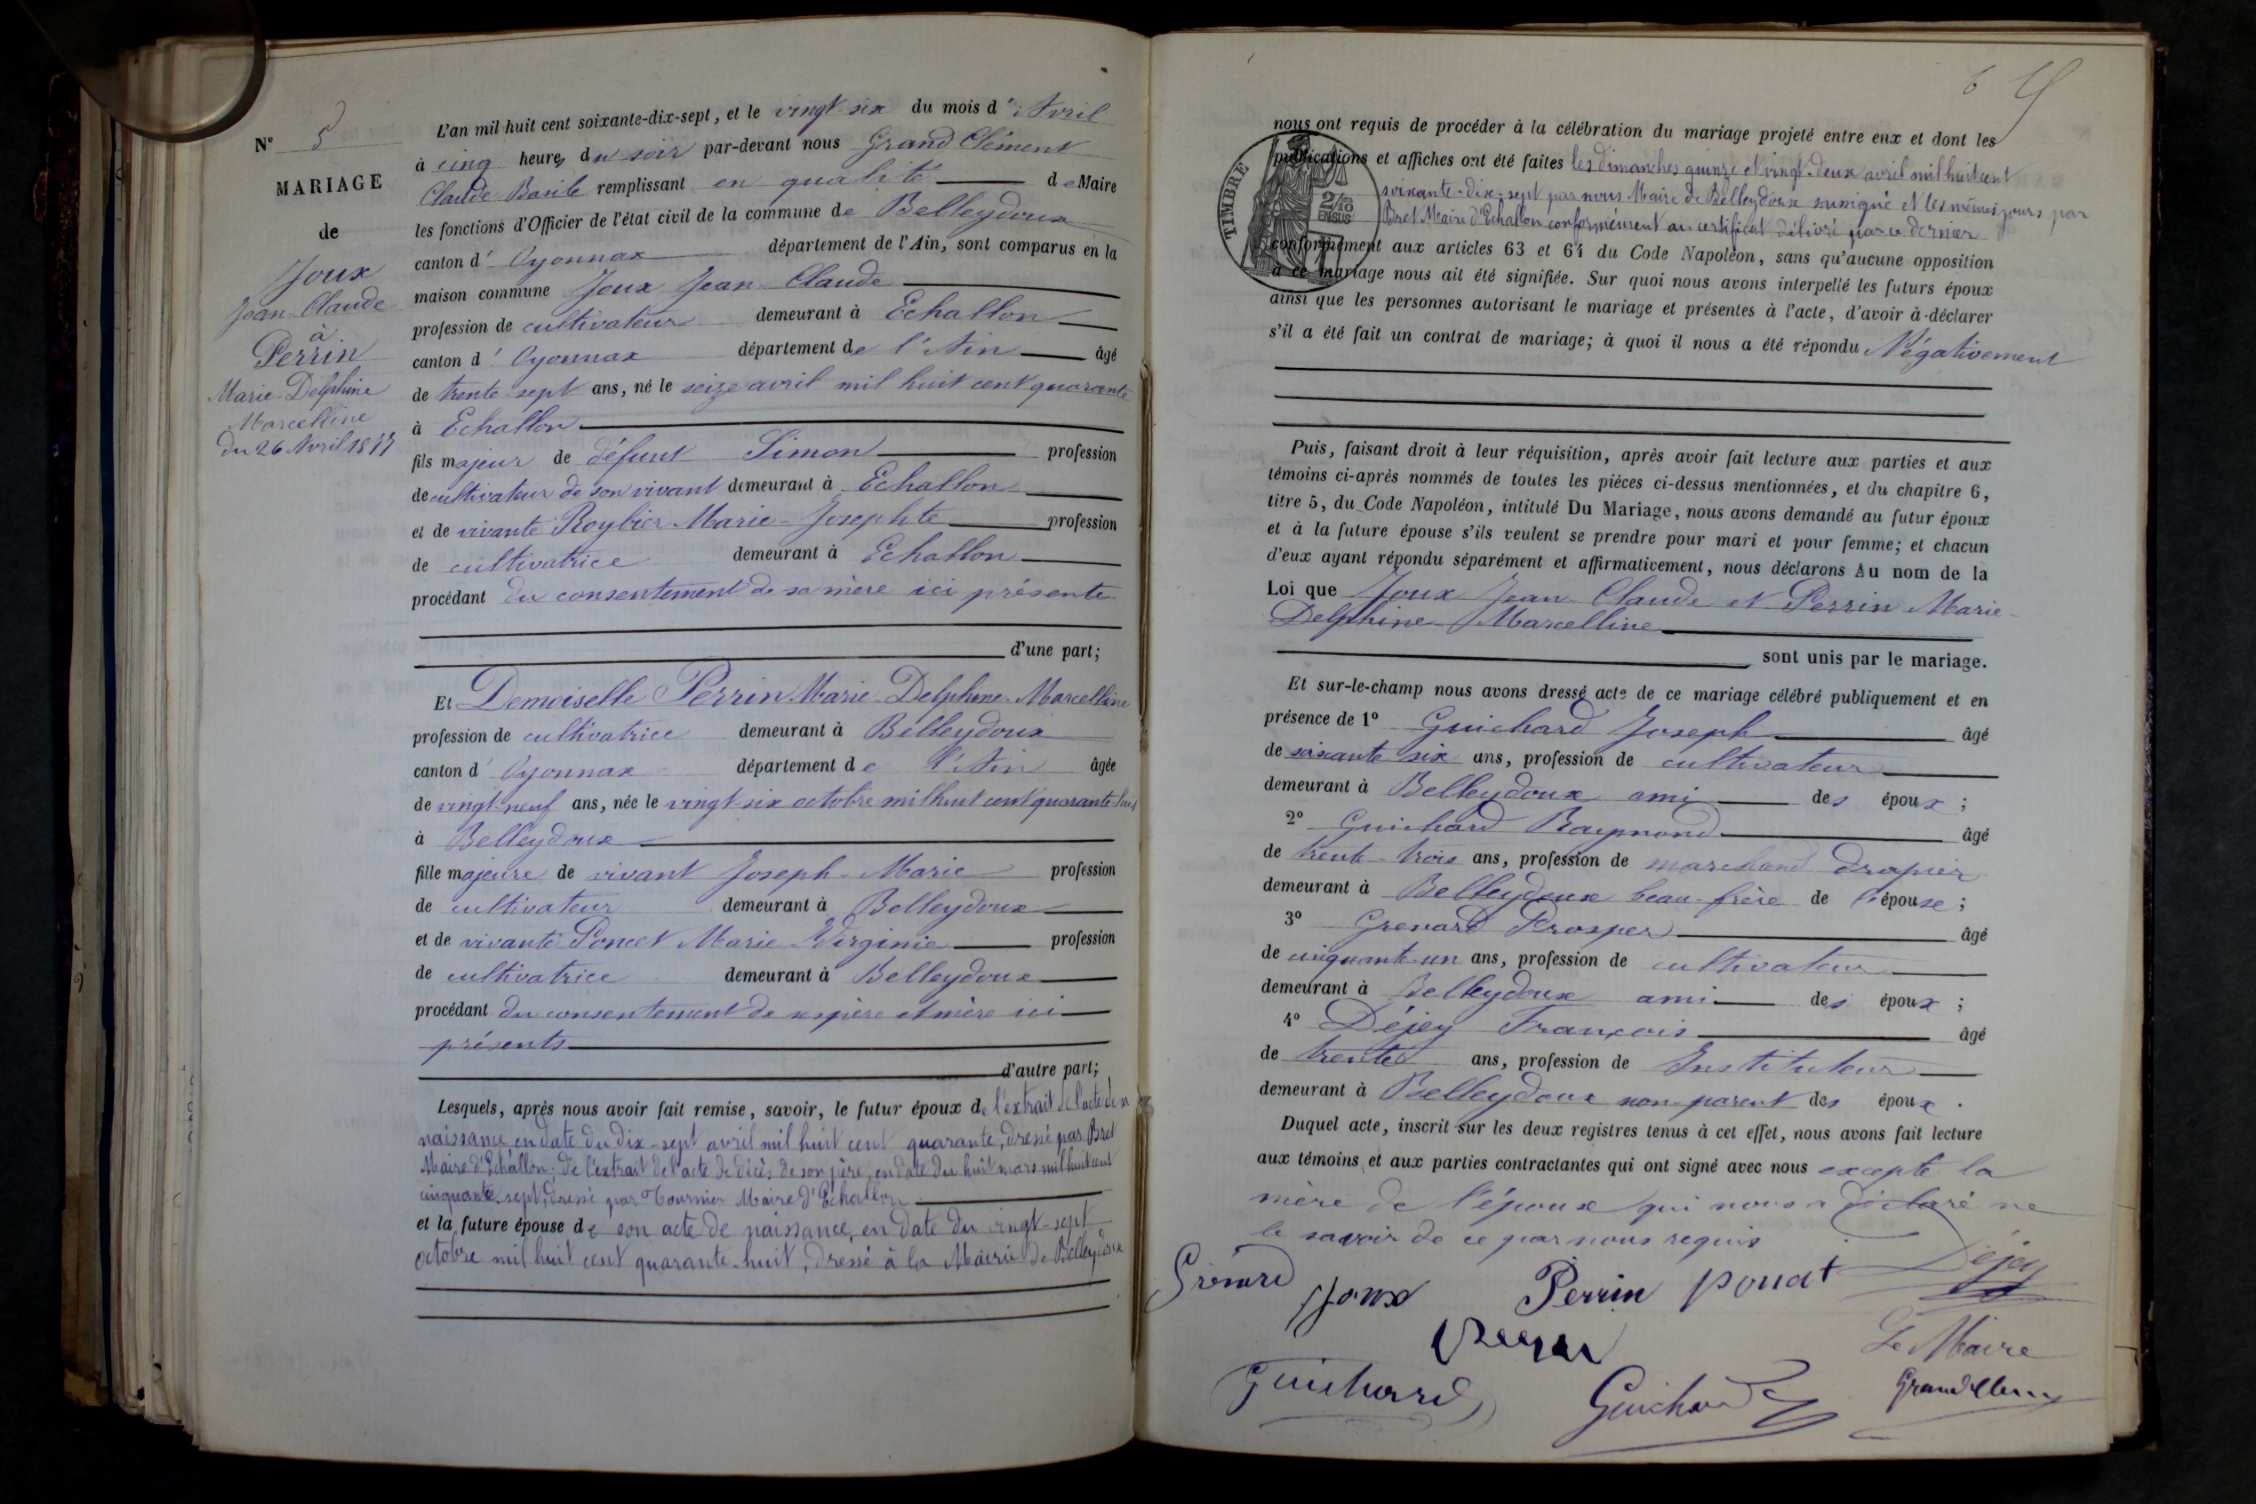 N° 5
MARIAGE
de
Joux
Jean-Claude
à
Perrin
Marie-Delphine
Marcelline
du 26 Avril 1877
L'an mil huit cent soixante-dix-sept, et le vingt-six du mois d'Avril
à cinq heures du soir par-devant nous Grand Clément
Claude Basile remplissant en qualité de Maire
les fonctions d'Officier de l'état civil de la commune de Belleydoux
canton d'Oyonnax département de l'Ain, sont comparus en la
maison commune Joux Jean-Claude
profession de cultivateur demeurant à Echallon
canton d'Oyonnax département de l'Ain âgé
de trente-sept ans, né le seize avril mil huit cent quarante
à Echallon
fils majeur de défunt Simon profession
de cultivateur de son vivant demeurant à Echallon
et de vivante Roybier Marie-Josephte profession
de cultivatrice demeurant à Echallon
procédant du consentement de sa mère ici présente
d'une part;
Et Demoiselle Perrin Marie-Delphine-Marcelline
profession de cultivatrice demeurant à Belleydoux
canton d'Oyonnax département de l'Ain âgée
de vingt-neuf ans, née le vingt-six octobre mil huit cent quarante-huit
à Belleydoux
fille majeure de vivant Joseph-Marie profession
de cultivateur demeurant à Belleydoux
et de vivante Poncet Marie Virginie profession
de cultivatrice demeurant à Belleydoux
procédant du consentement de ses père et mère ici
présents
d'autre part;
Lesquels, après nous avoir fait remise, savoir, le futur époux de l'extrait de l'acte de sa
naissance, en date du dix-sept avril mil huit cent quarante, dressé par Bret
Maire d'Echallon; de l'extrait de l'acte de décès de son père, en date du huit mars mil huit cent
cinquante-sept, dressé par Tournier Maire d'Echallon
et la future épouse de son acte de naissance, en date du vingt-sept
octobre mil huit cent quarante-huit, dressé à la Mairie de Belleydoux
6
TIMBRE
2/10
EN SUS
nous ont requis de procéder à la célébration du mariage projeté entre eux et dont les
publications et affiches ont été faites les dimanches quinze et vingt-deux avril mil huit cent
soixante-dix-sept par nous Maire de Belleydoux soussigné et les mêmes jours par
Bret Maire d'Echallon conformément au certificat délivré par ce dernier
conformément aux articles 63 et 64 du Code Napoléon, sans qu'aucune opposition
à ce mariage nous ait été signifiée. Sur quoi nous avons interpellé les futurs époux
ainsi que les personnes autorisant le mariage et présentes à l'acte, d'avoir à déclarer
s'il a été fait un contrat de mariage; à quoi il nous a été répondu Négativement
Puis, faisant droit à leur réquisition, après avoir fait lecture aux parties et aux
témoins ci-après nommés de toutes les pièces ci-dessus mentionnées, et du chapitre 6,
titre 5, du Code Napoléon, intitulé Du Mariage, nous avons demandé au futur époux
et à la future épouse s'ils veulent se prendre pour mari et pour femme; et chacun
d'eux ayant répondu séparément et affirmativement, nous déclarons Au nom de la
Loi que Joux Jean-Claude et Perrin Marie-
Delphine-Marcelline
sont unis par le mariage.
Et sur-le-champ nous avons dressé acte de ce mariage célébré publiquement et en
présence de 1° Guichard Joseph âgé
de soixante six ans, profession de cultivateur
demeurant à Belleydoux ami des époux;
2° Guichard Raymond âgé
de trente-trois ans, profession de marchand drapier
demeurant à Belleydoux beau-frère de l'épouse;
3° Grenard Prosper âgé
de cinquante-un ans, profession de cultivateur
demeurant à Belleydoux ami des époux;
4° Déjey François âgé
de trente ans, profession de Instituteur
demeurant à Belleydoux non-parent des époux.
Duquel acte, inscrit sur les deux registres tenus à cet effet, nous avons fait lecture
aux témoins et aux parties contractantes qui ont signé avec nous excepté la
mère de l'époux qui nous a déclaré ne
le savoir de ce par nous requis
Grénard Joux Perrin Déjey
Le Maire
Guichard Guichard Grandclément